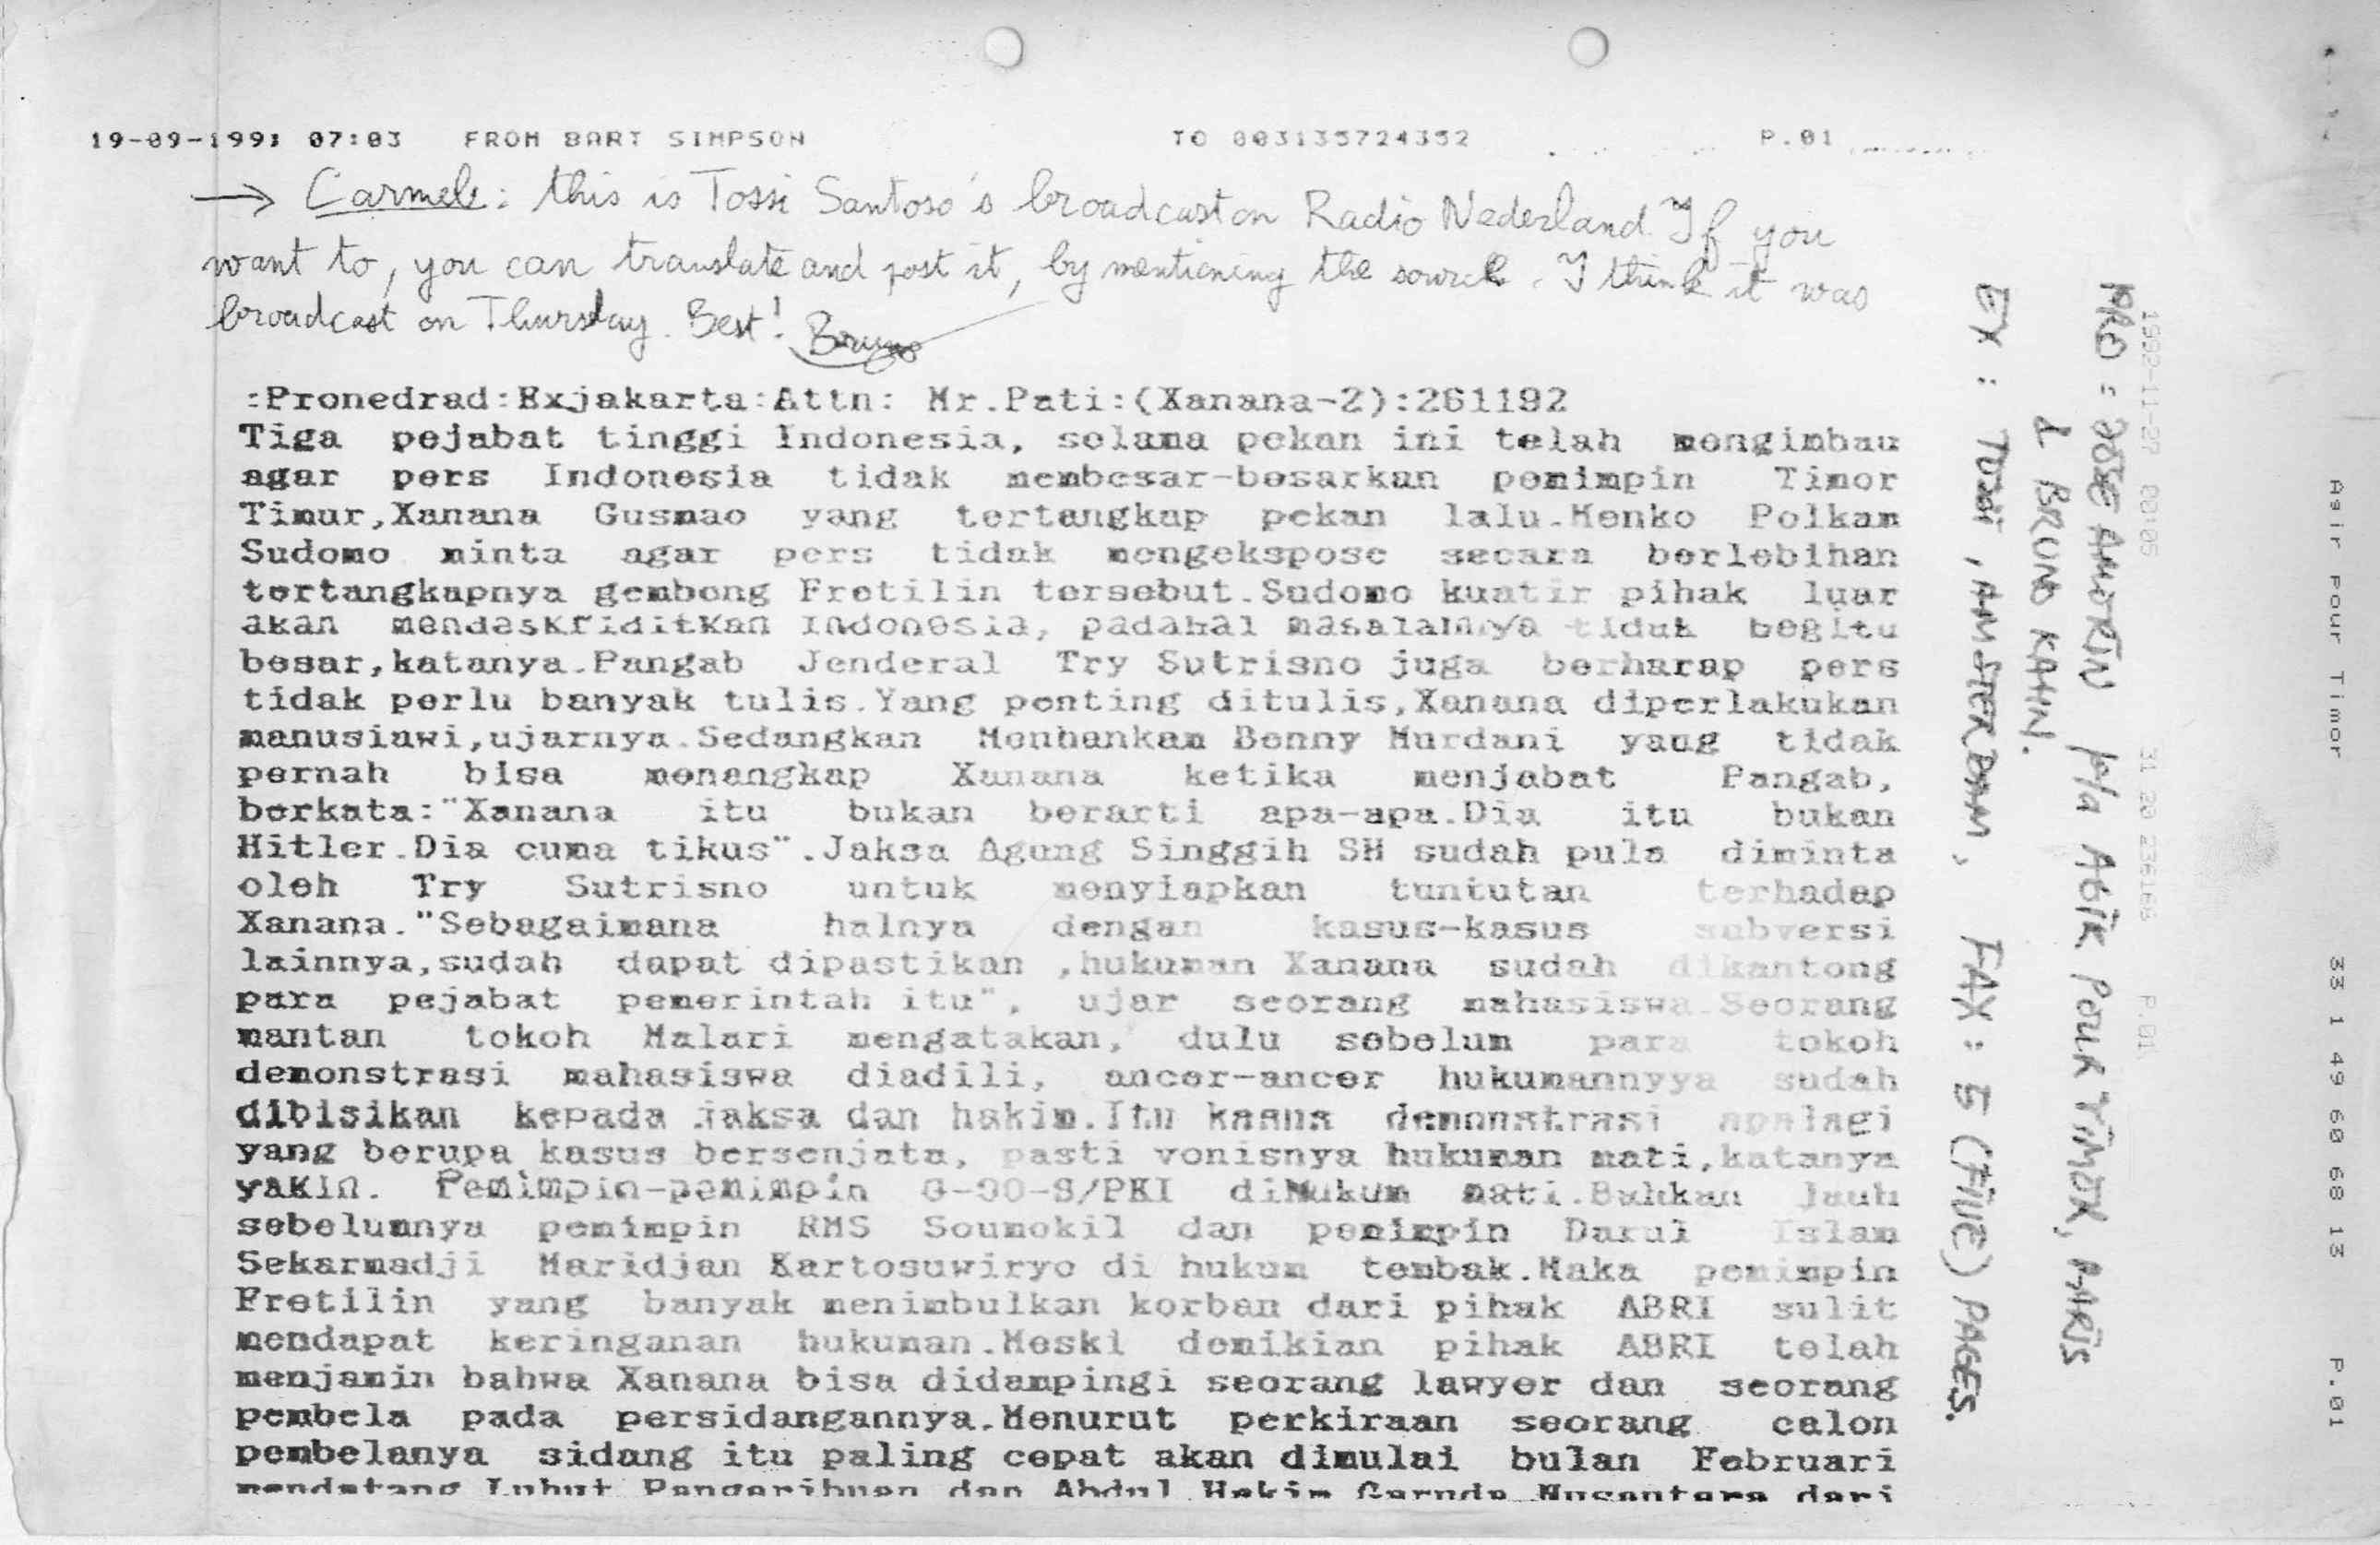 19-09-1991 07:03 FROM BART SIMPSON TO 003135724352 P.01
→ Carmel: this is Tossi Santoso's broadcast on Radio Nederland. If you
want to, you can translate and post it, by mentioning the source. I think it was
broadcast on Thursday. Best! Bruno
:Pronedrad:Exjakarta:Attn: Mr.Pati:(Xanana-2):261192
Tiga pejabat tinggi Indonesia, selama pekan ini telah mengimbau
agar pers Indonesia tidak membesar-besarkan pemimpin Timor
Timur,Xanana Gusmao yang tertangkap pekan lalu.Menko Polkam
Sudomo minta agar pers tidak mengekspose secara berlebihan
tertangkapnya gembong Fretilin tersebut.Sudomo kuatir pihak luar
akan mendeskriditkan Indonesia, padahal masalahnya tidak begitu
besar,katanya.Pangab Jenderal Try Sutrisno juga berharap pers
tidak perlu banyak tulis.Yang penting ditulis,Xanana diperlakukan
manusiawi,ujarnya.Sedangkan Menhankam Benny Murdani yang tidak
pernah bisa menangkap Xanana ketika menjabat Pangab,
berkata:"Xanana itu bukan berarti apa-apa.Dia itu bukan
Hitler.Dia cuma tikus".Jaksa Agung Singgih SH sudah pula diminta
oleh Try Sutrisno untuk menyiapkan tuntutan terhadap
Xanana."Sebagaimana halnya dengan kasus-kasus subversi
lainnya,sudah dapat dipastikan ,hukuman Xanana sudah dikantong
para pejabat pemerintah itu", ujar seorang mahasiswa.Seorang
mantan tokoh Malari mengatakan, dulu sebelum para tokoh
demonstrasi mahasiswa diadili, ancer-ancer hukumannyya sudah
dibisikan kepada jaksa dan hakim.Itu kasus demonstrasi apalagi
yang berupa kasus bersenjata, pasti vonisnya hukuman mati,katanya
yakin. Pemimpin-pemimpin G-30-S/PKI diHukum mati.Bahkan jauh
sebelumnya pemimpin RMS Soumokil dan pemimpin Darul Islam
Sekarmadji Maridjan Kartosuwiryo di hukum tembak.Maka pemimpin
Fretilin yang banyak menimbulkan korban dari pihak ABRI sulit
mendapat keringanan hukuman.Meski demikian pihak ABRI telah
menjamin bahwa Xanana bisa didampingi seorang lawyer dan seorang
pembela pada persidangannya.Menurut perkiraan seorang calon
pembelanya sidang itu paling cepat akan dimulai bulan Februari
mendatang Luhut Pangaribuan dan Abdul Hakim Garuda Nusantara dari
EX: TOSSI, AMSTERDAM, FAX: 5 (FIVE) PAGES.
& BRUNO KAHN.
PRO = JOSE AMORIN p/a AGIR POUR TIMOR, PARIS
1992-11-27 00:05 31 20 236166 P.01
Agir Pour Timor 33 1 49 60 68 13 P.01